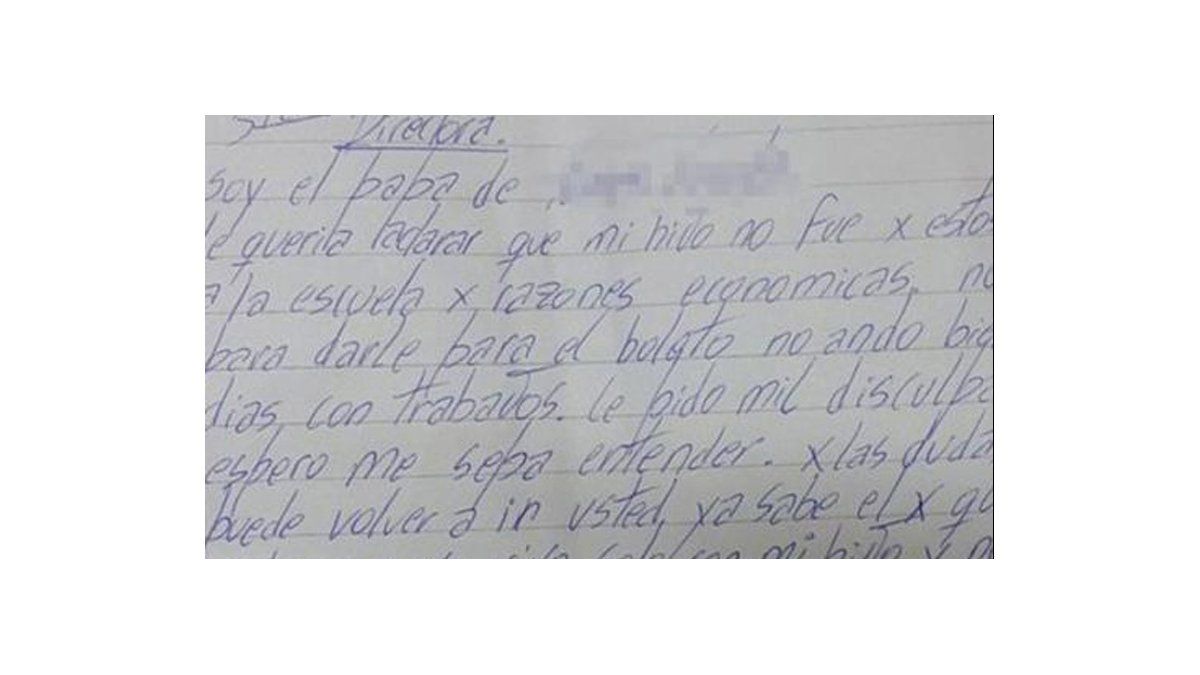 Directora.
soy el papa de
le queria aclarar que mi hijo no fue x estos
a la escuela x razones economicas, no
para darle para el boleto no ando bie
dias con trabajos. le pido mil disculpa
espero me sepa entender. x las duda
puede volver a ir usted, ya sabe el x qu
mi hijo y